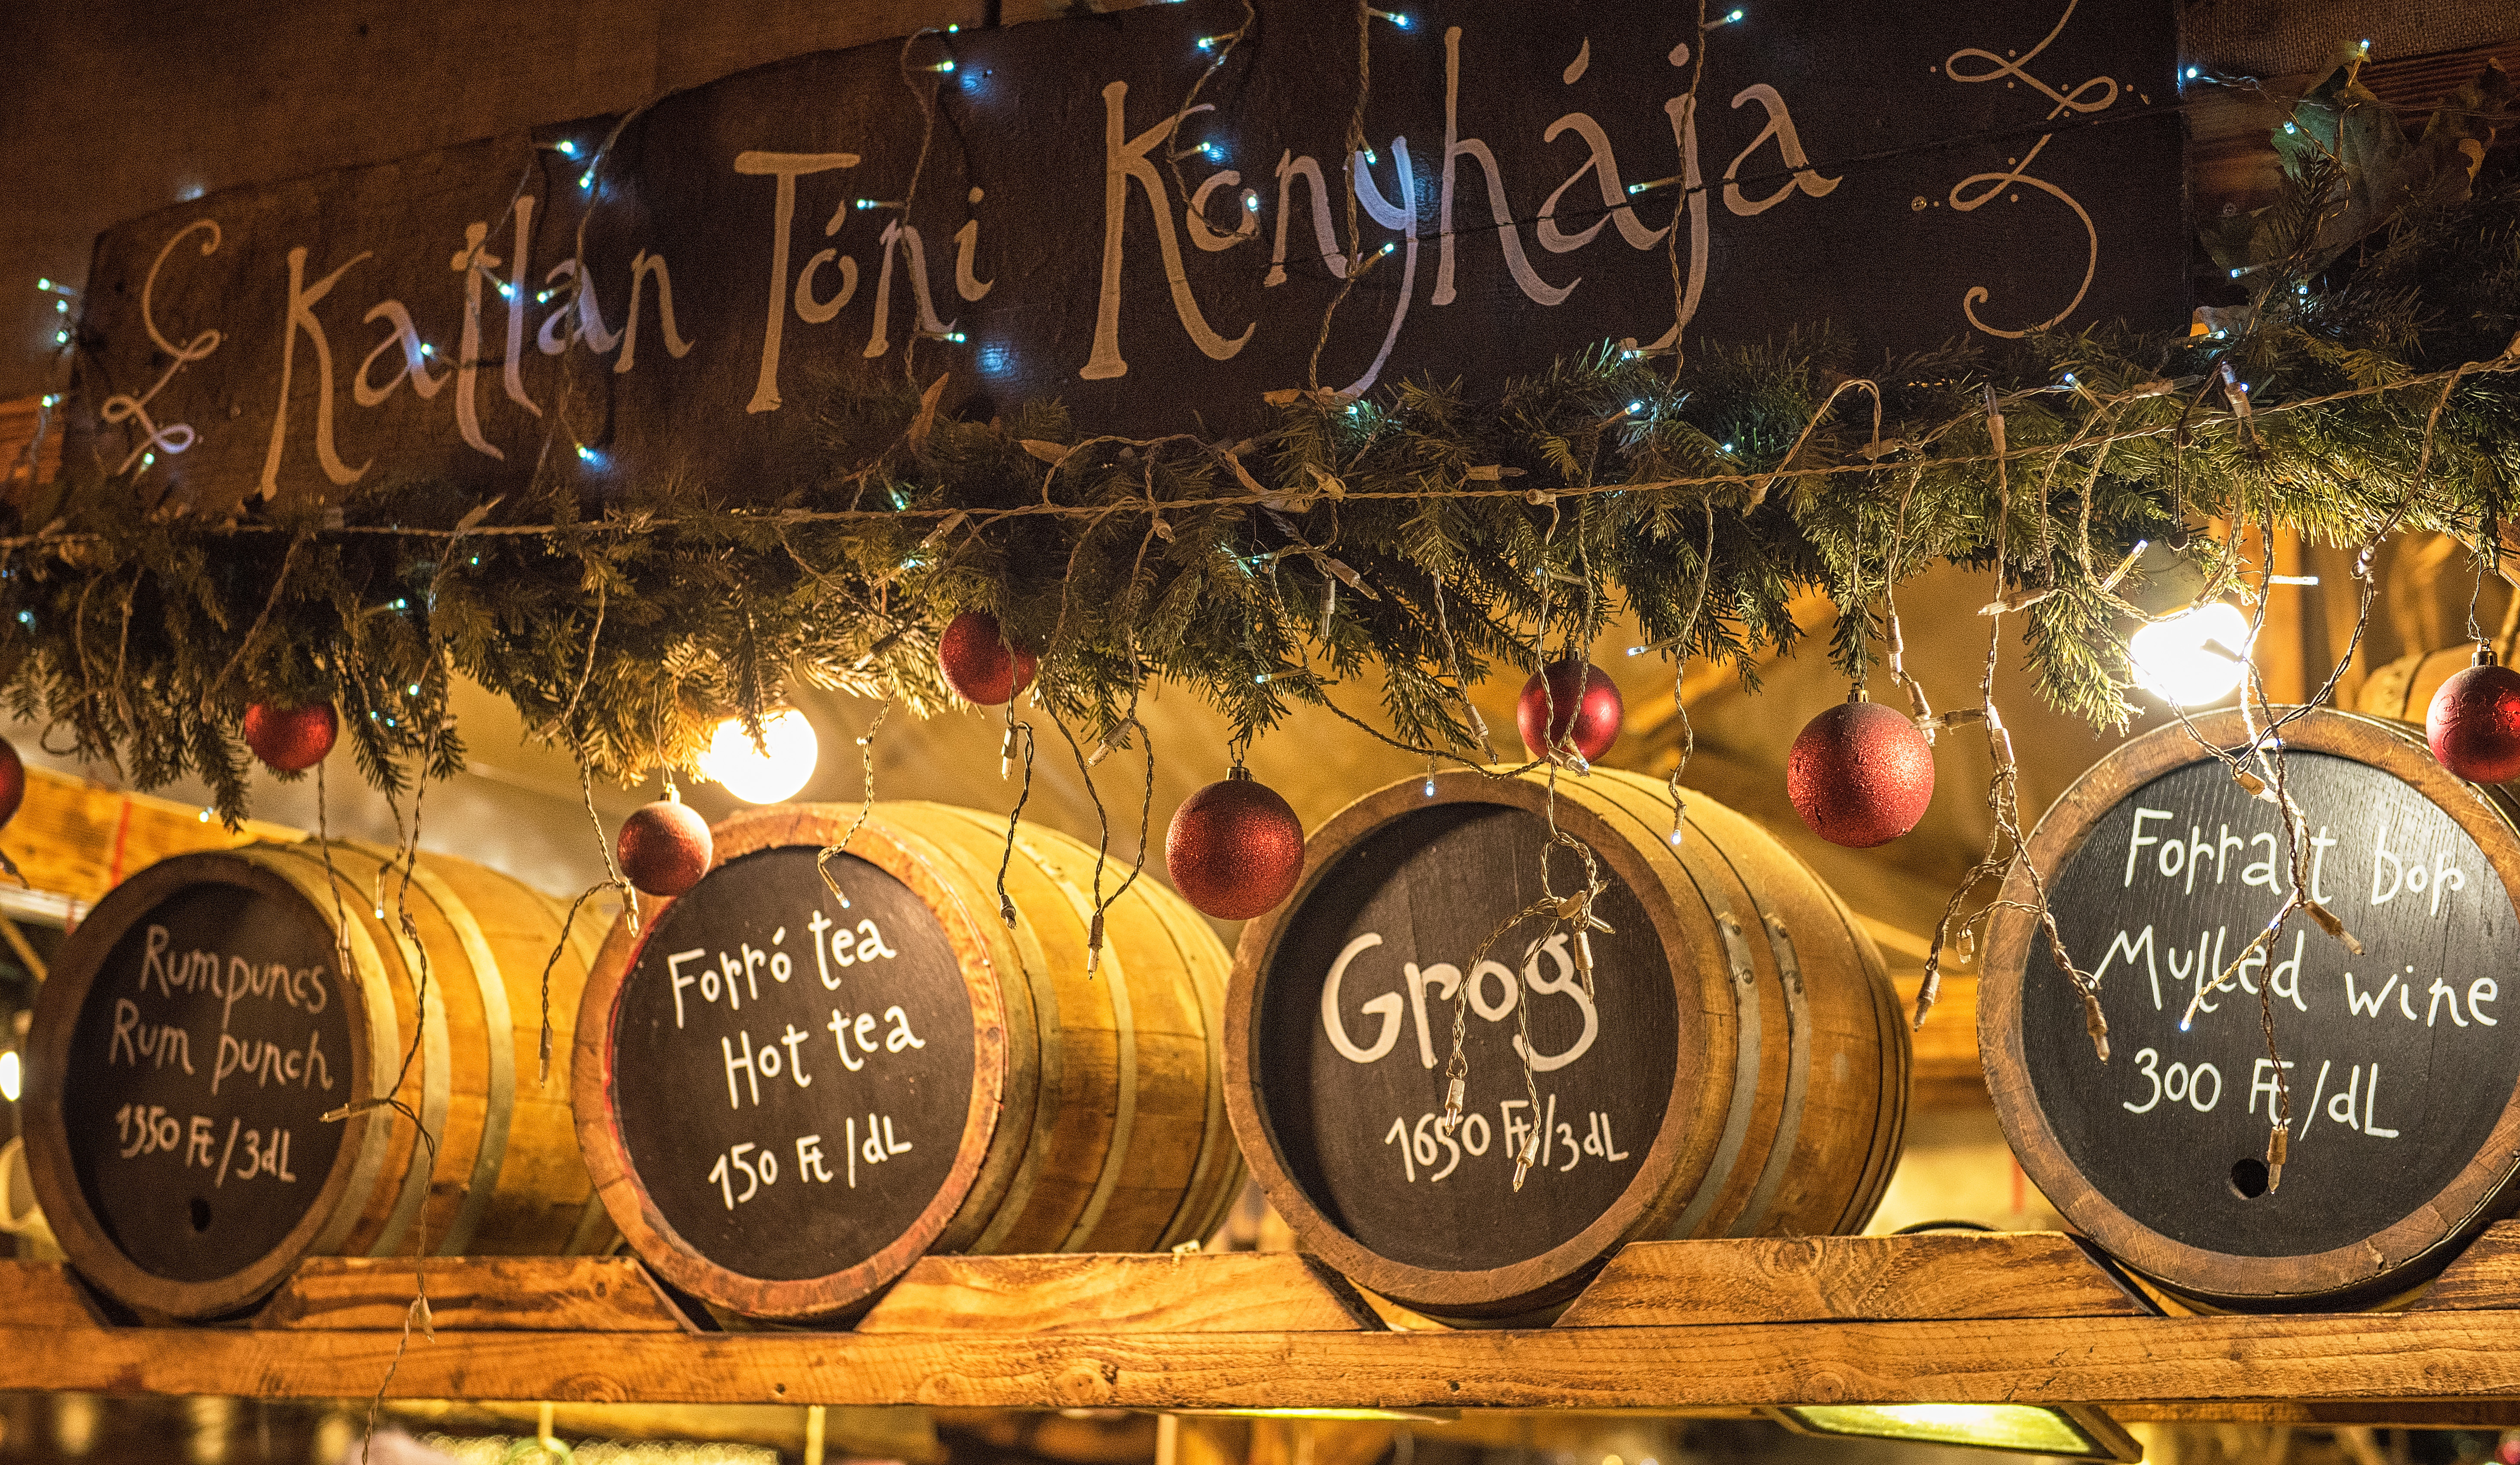 Katlan Tóni Konyhája
Rumpuncs
Rum punch
1350 Ft/3dL
Forró tea
Hot tea
150 Ft/dL
Grog
1650 Ft/3dL
Forralt bor
Mulled wine
300 Ft/dL